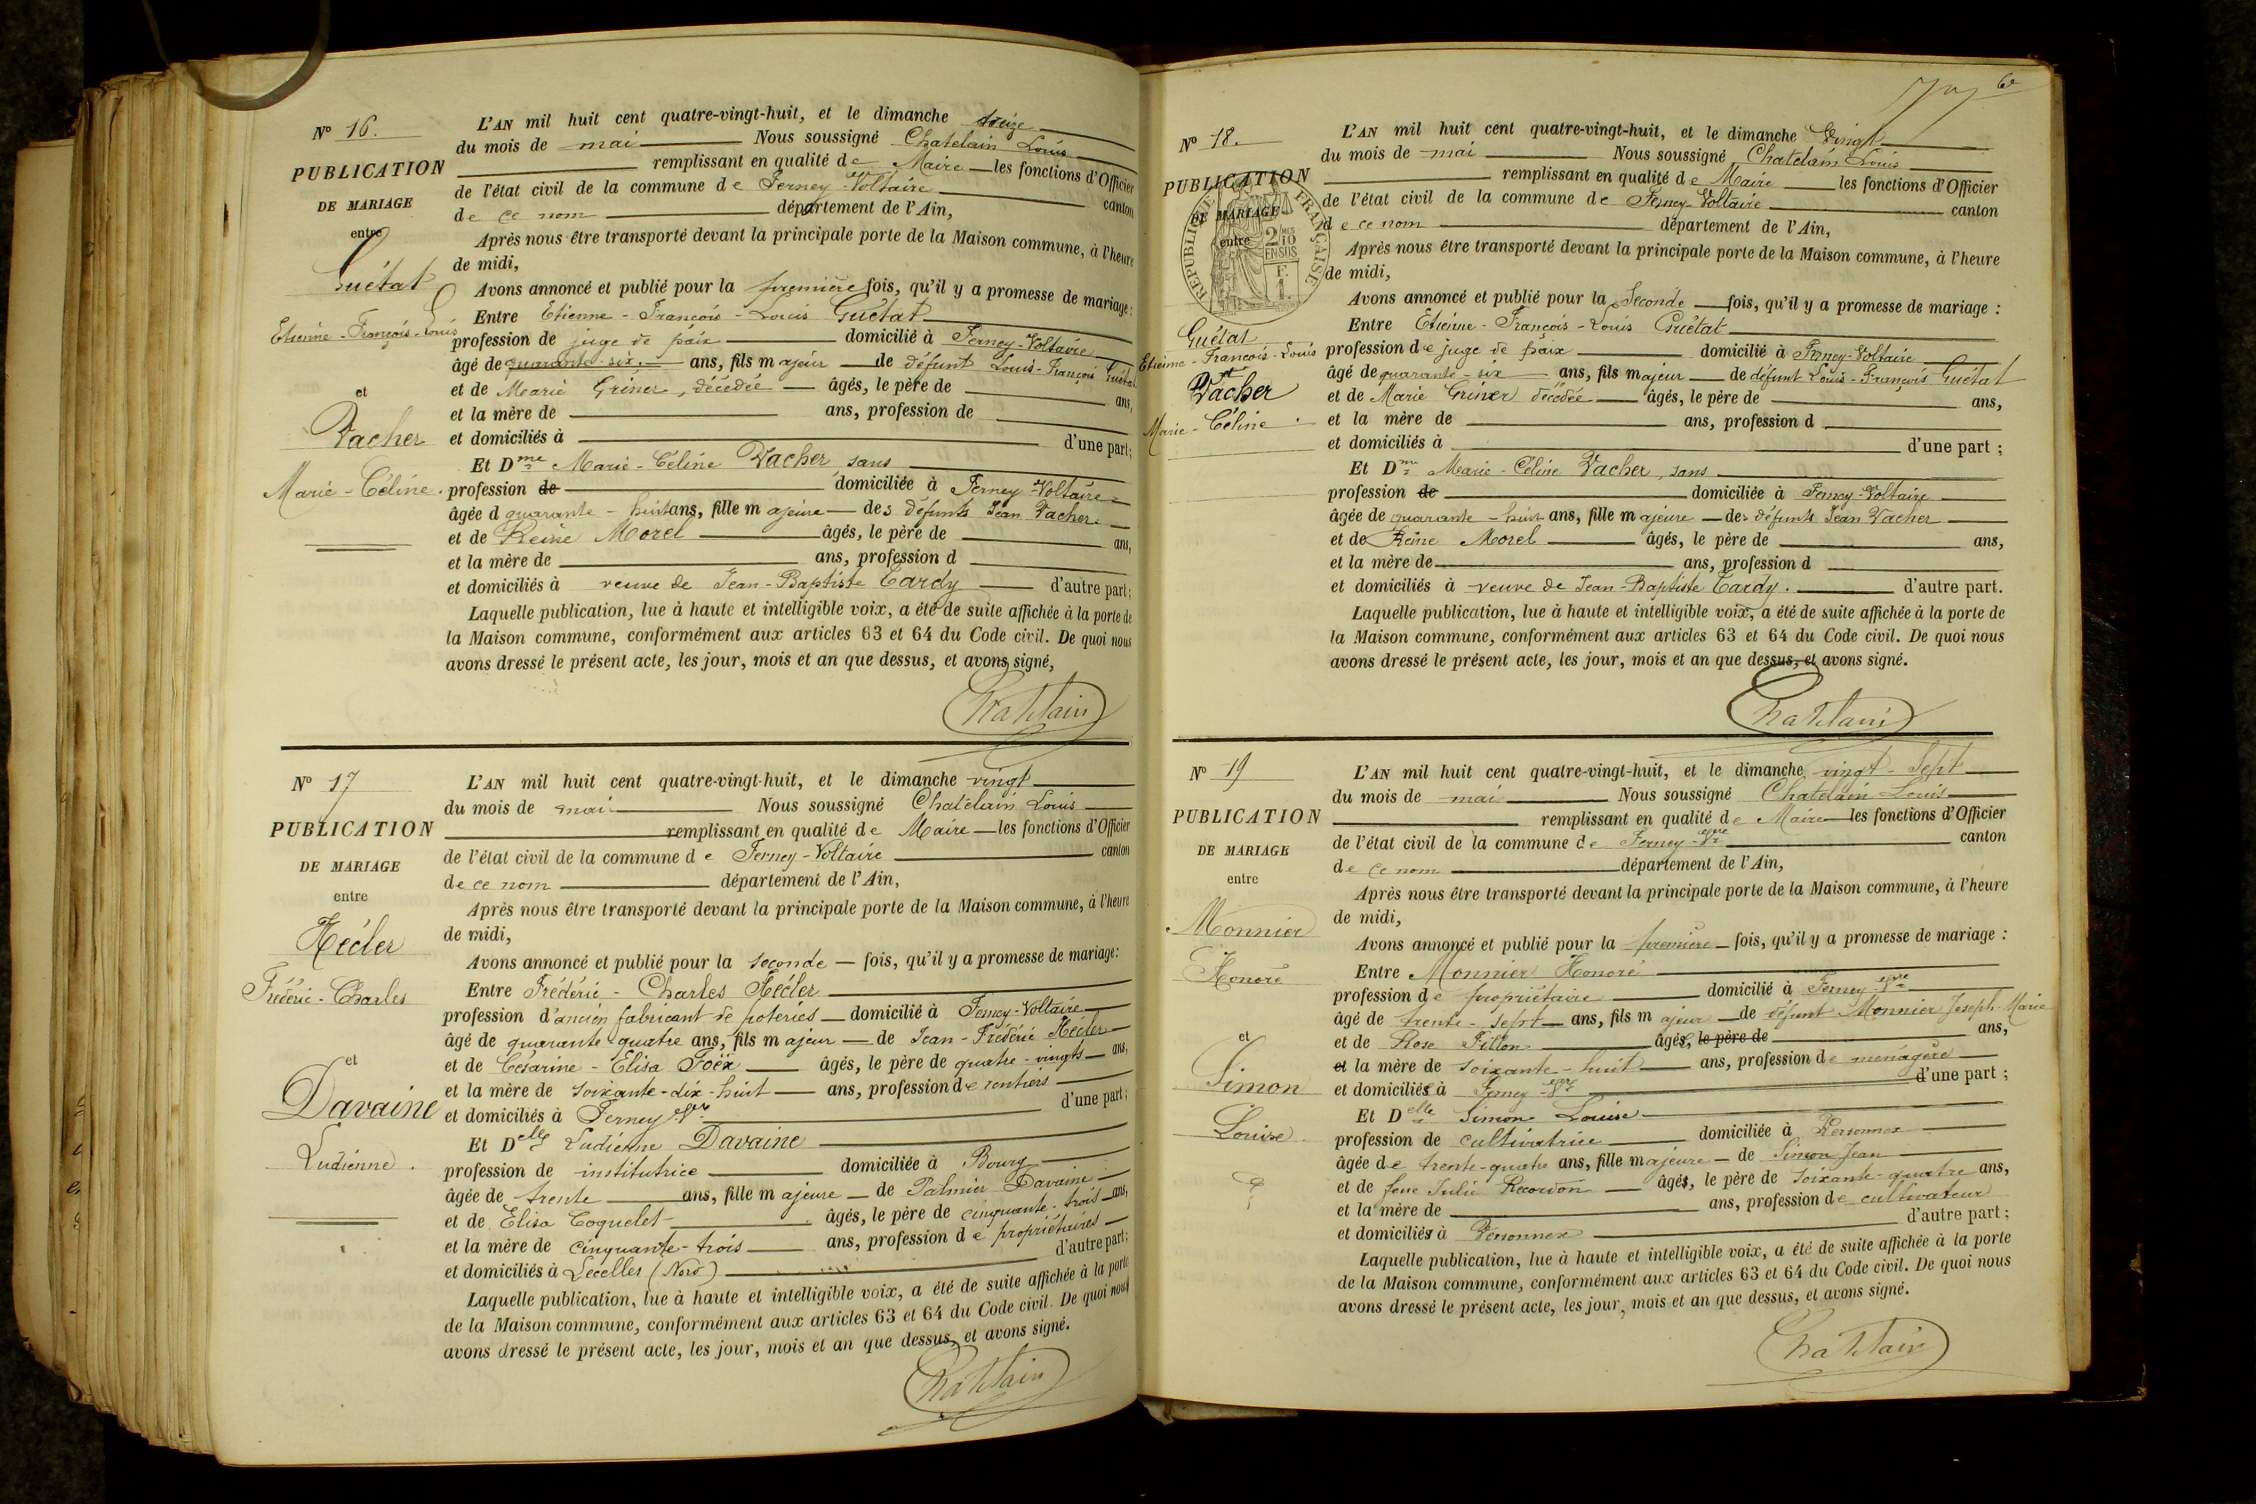 N° 16.
PUBLICATION
DE MARIAGE
entre
Guétat
Etienne-François-Louis
et
Vacher
Marie-Céline.
L'AN mil huit cent quatre-vingt-huit, et le dimanche treize
du mois de mai Nous soussigné Chatelain Louis
remplissant en qualité de Maire les fonctions d'Officier
de l'état civil de la commune de Ferney-Voltaire canton
de ce nom département de l'Ain,
Après nous être transporté devant la principale porte de la Maison commune, à l'heure
de midi,
Avons annoncé et publié pour la première fois, qu'il y a promesse de mariage:
Entre Etienne-François-Louis Guétat
profession de juge de paix domicilié à Ferney-Voltaire
âgé de quarante-six ans, fils majeur de défunt Louis-François Guétat
et de Marie Griner, décédée âgés, le père de ans,
et la mère de ans, profession de
et domiciliés à d'une part;
Et Dme Marie-Céline Vacher, sans
profession de domiciliée à Ferney-Voltaire
âgée d quarante-huit ans, fille majeure des défunts Jean Vacher
et de Reine Morel âgés, le père de ans,
et la mère de ans, profession d
et domiciliés à veuve de Jean-Baptiste Tardy d'autre part;
Laquelle publication, lue à haute et intelligible voix, a été de suite affichée à la porte de
la Maison commune, conformément aux articles 63 et 64 du Code civil. De quoi nous
avons dressé le présent acte, les jour, mois et an que dessus, et avons signé,
Chatelain
N° 17
PUBLICATION
DE MARIAGE
entre
Hécler
Frédéric-Charles
et
Davaine
Ludienne.
L'AN mil huit cent quatre-vingt-huit, et le dimanche vingt
du mois de mai Nous soussigné Chatelain Louis
remplissant en qualité de Maire les fonctions d'Officier
de l'état civil de la commune de Ferney-Voltaire canton
de ce nom département de l'Ain,
Après nous être transporté devant la principale porte de la Maison commune, à l'heure
de midi,
Avons annoncé et publié pour la seconde fois, qu'il y a promesse de mariage:
Entre Frédéric-Charles Hécler
profession d'ancien fabricant de poteries domicilié à Ferney-Voltaire
âgé de quarante quatre ans, fils majeur de Jean-Frédéric Hécler
et de Césarine-Elisa Foëx âgés, le père de quatre-vingts ans,
et la mère de soixante-dix-huit ans, profession de rentiers
et domiciliés à Ferney d'une part;
Et Delle Ludienne Davaine
profession de institutrice domiciliée à Bourg
âgée de trente ans, fille majeure de Palmier Davaine
et de Elisa Coquelet âgés, le père de cinquante-trois ans,
et la mère de cinquante-trois ans, profession de propriétaires
et domiciliés à Lecelles (Nord) d'autre part;
Laquelle publication, lue à haute et intelligible voix, a été de suite affichée à la porte
de la Maison commune, conformément aux articles 63 et 64 du Code civil. De quoi nous
avons dressé le présent acte, les jour, mois et an que dessus, et avons signé.
Chatelain
N° 18.
PUBLICATION
DE MARIAGE
entre
RÉPUBLIQUE FRANÇAISE
2/10
EN SUS
Guétat
Etienne-François-Louis
et
Vacher
Marie-Céline
L'AN mil huit cent quatre-vingt-huit, et le dimanche Vingt
du mois de mai Nous soussigné Chatelain Louis
remplissant en qualité de Maire les fonctions d'Officier
de l'état civil de la commune de Ferney-Voltaire canton
de ce nom département de l'Ain,
Après nous être transporté devant la principale porte de la Maison commune, à l'heure
de midi,
Avons annoncé et publié pour la Seconde fois, qu'il y a promesse de mariage :
Entre Etienne-François-Louis Guétat
profession de juge de paix domicilié à Ferney-Voltaire
âgé de quarante-six ans, fils majeur de défunt Louis-François Guétat
et de Marie Griner décédée âgés, le père de ans,
et la mère de ans, profession d
et domiciliés à d'une part ;
Et Dme Marie-Céline Vacher, sans
profession de domiciliée à Ferney-Voltaire
âgée de quarante-huit ans, fille majeure des défunts Jean Vacher
et de Reine Morel âgés, le père de ans,
et la mère de ans, profession d
et domiciliés à veuve de Jean-Baptiste Tardy. d'autre part.
Laquelle publication, lue à haute et intelligible voix, a été de suite affichée à la porte de
la Maison commune, conformément aux articles 63 et 64 du Code civil. De quoi nous
avons dressé le présent acte, les jour, mois et an que dessus, et avons signé.
Chatelain
N° 19
PUBLICATION
DE MARIAGE
entre
Monnier
Honoré
et
Simon
Louise
L'AN mil huit cent quatre-vingt-huit, et le dimanche vingt-Sept
du mois de mai Nous soussigné Chatelain Louis
remplissant en qualité de Maire les fonctions d'Officier
de l'état civil de la commune de Ferney-Vre canton
de ce nom département de l'Ain,
Après nous être transporté devant la principale porte de la Maison commune, à l'heure
de midi,
Avons annoncé et publié pour la première fois, qu'il y a promesse de mariage :
Entre Monnier Honoré
profession de propriétaire domicilié à Ferney-Vre
âgé de trente-sept ans, fils majeur de défunt Monnier Joseph-Marie
et de Rose Fillon âgés, le père de ans,
et la mère de soixante-huit ans, profession de ménagère
et domiciliés à Ferney-Vre d'une part ;
Et Delle Simon Louise
profession de cultivatrice domiciliée à Versonnex
âgée de trente-quatre ans, fille majeure de Simon Jean
et de feue Julie Recordon âgés, le père de soixante-quatre ans,
et la mère de ans, profession de cultivateur
et domiciliés à Versonnex d'autre part ;
Laquelle publication, lue à haute et intelligible voix, a été de suite affichée à la porte
de la Maison commune, conformément aux articles 63 et 64 du Code civil. De quoi nous
avons dressé le présent acte, les jour, mois et an que dessus, et avons signé.
Chatelain